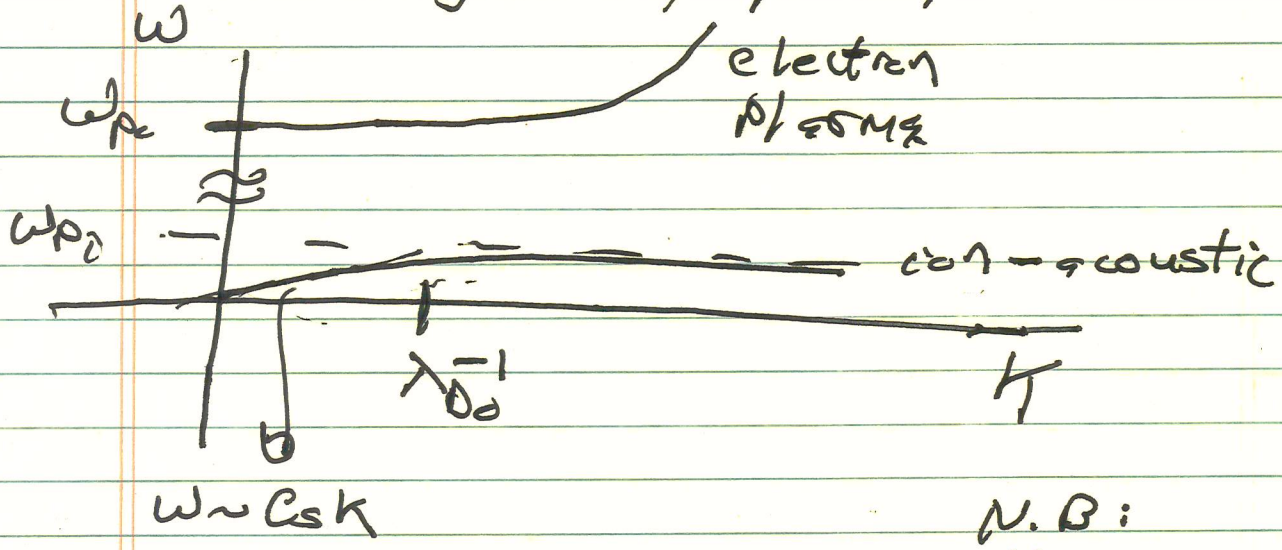 ω
electron
plasma
ω_pe
ω_pi
ion-acoustic
λ_D^-1
k
ω ~ C_s k
N.B: